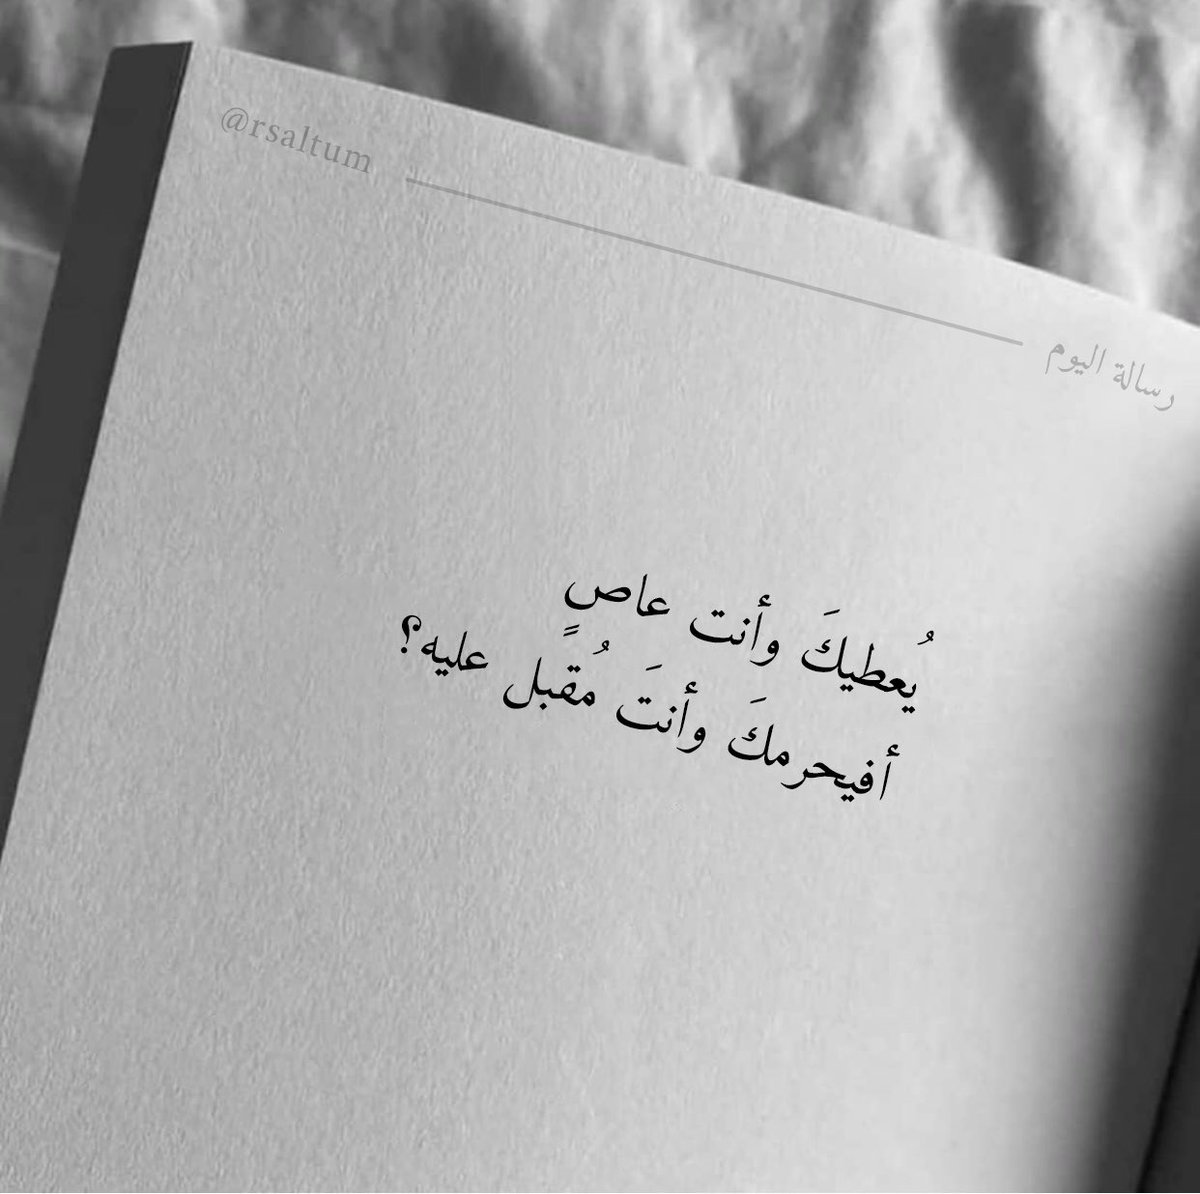 @rsaltum
رسالة اليوم
يُعطيكَ وأنت عاصٍ
أفيحرمكَ وأنتَ مُقبل عليه؟